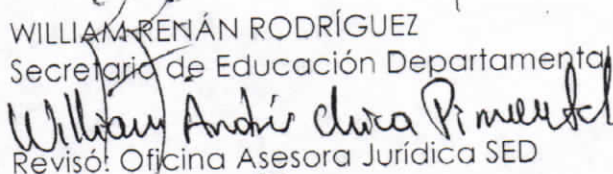 WILLIAM RENÁN RODRÍGUEZ
Secretario de Educación Departamental
William Andrés Chica Pimentel
Revisó: Oficina Asesora Jurídica SED